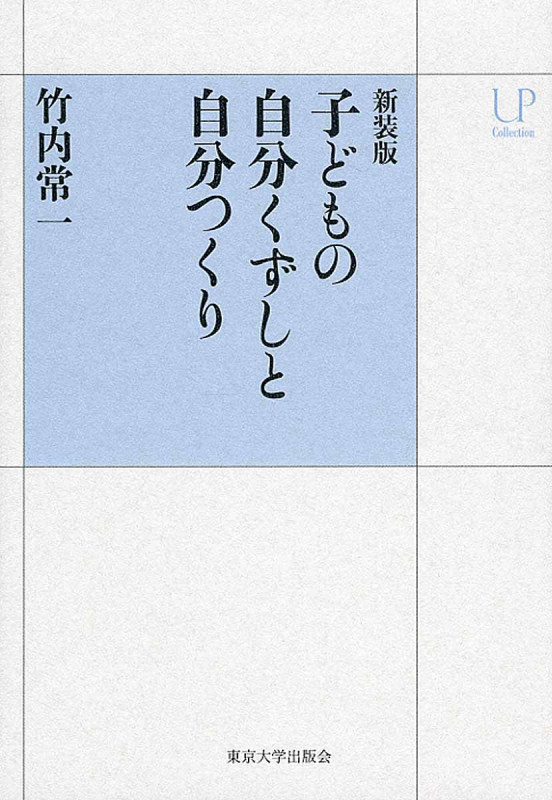 新装版
子どもの
自分くずしと
自分つくり
竹内常一
UP
Collection
東京大学出版会